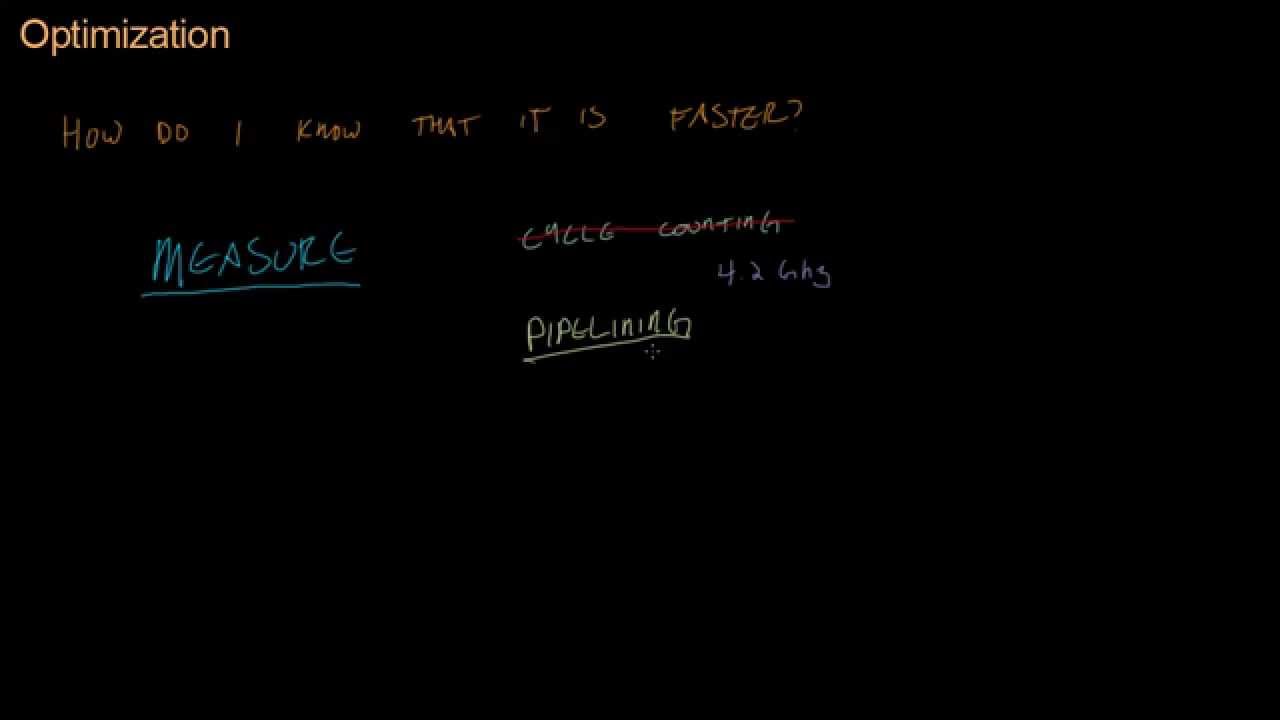 Optimization
HOW DO I KNOW THAT IT IS FASTER?
MEASURE
CYCLE COUNTING
4.2 Ghz
PIPELINING